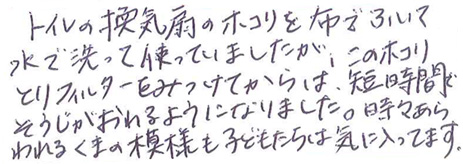 トイレの換気扇のホコリを布でふいて
水で洗って使っていましたが、このホコリ
とりフィルターをみつけてからは、短時間で
そうじがおわるようになりました。時々あら
われるくまの模様も子どもたちは気に入ってます。